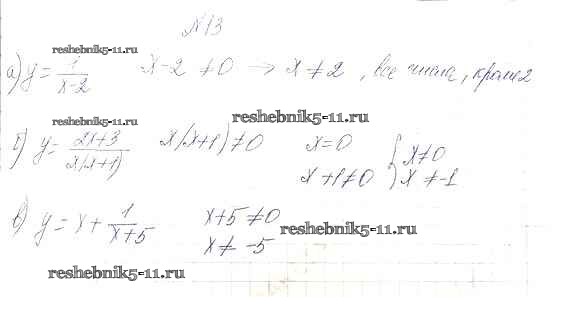 №13
reshebnik5-11.ru
а) y = 1/(x-2)   x-2 ≠ 0 → x ≠ 2, все числа, кроме 2
reshebnik5-11.ru   reshebnik5-11.ru
б) y = (2x+3)/(x(x+1))   x(x+1) ≠ 0   x=0   { x ≠ 0
x+1 ≠ 0   x ≠ -1
в) y = x + 1/(x+5)   x+5 ≠ 0
reshebnik5-11.ru
x ≠ -5
reshebnik5-11.ru